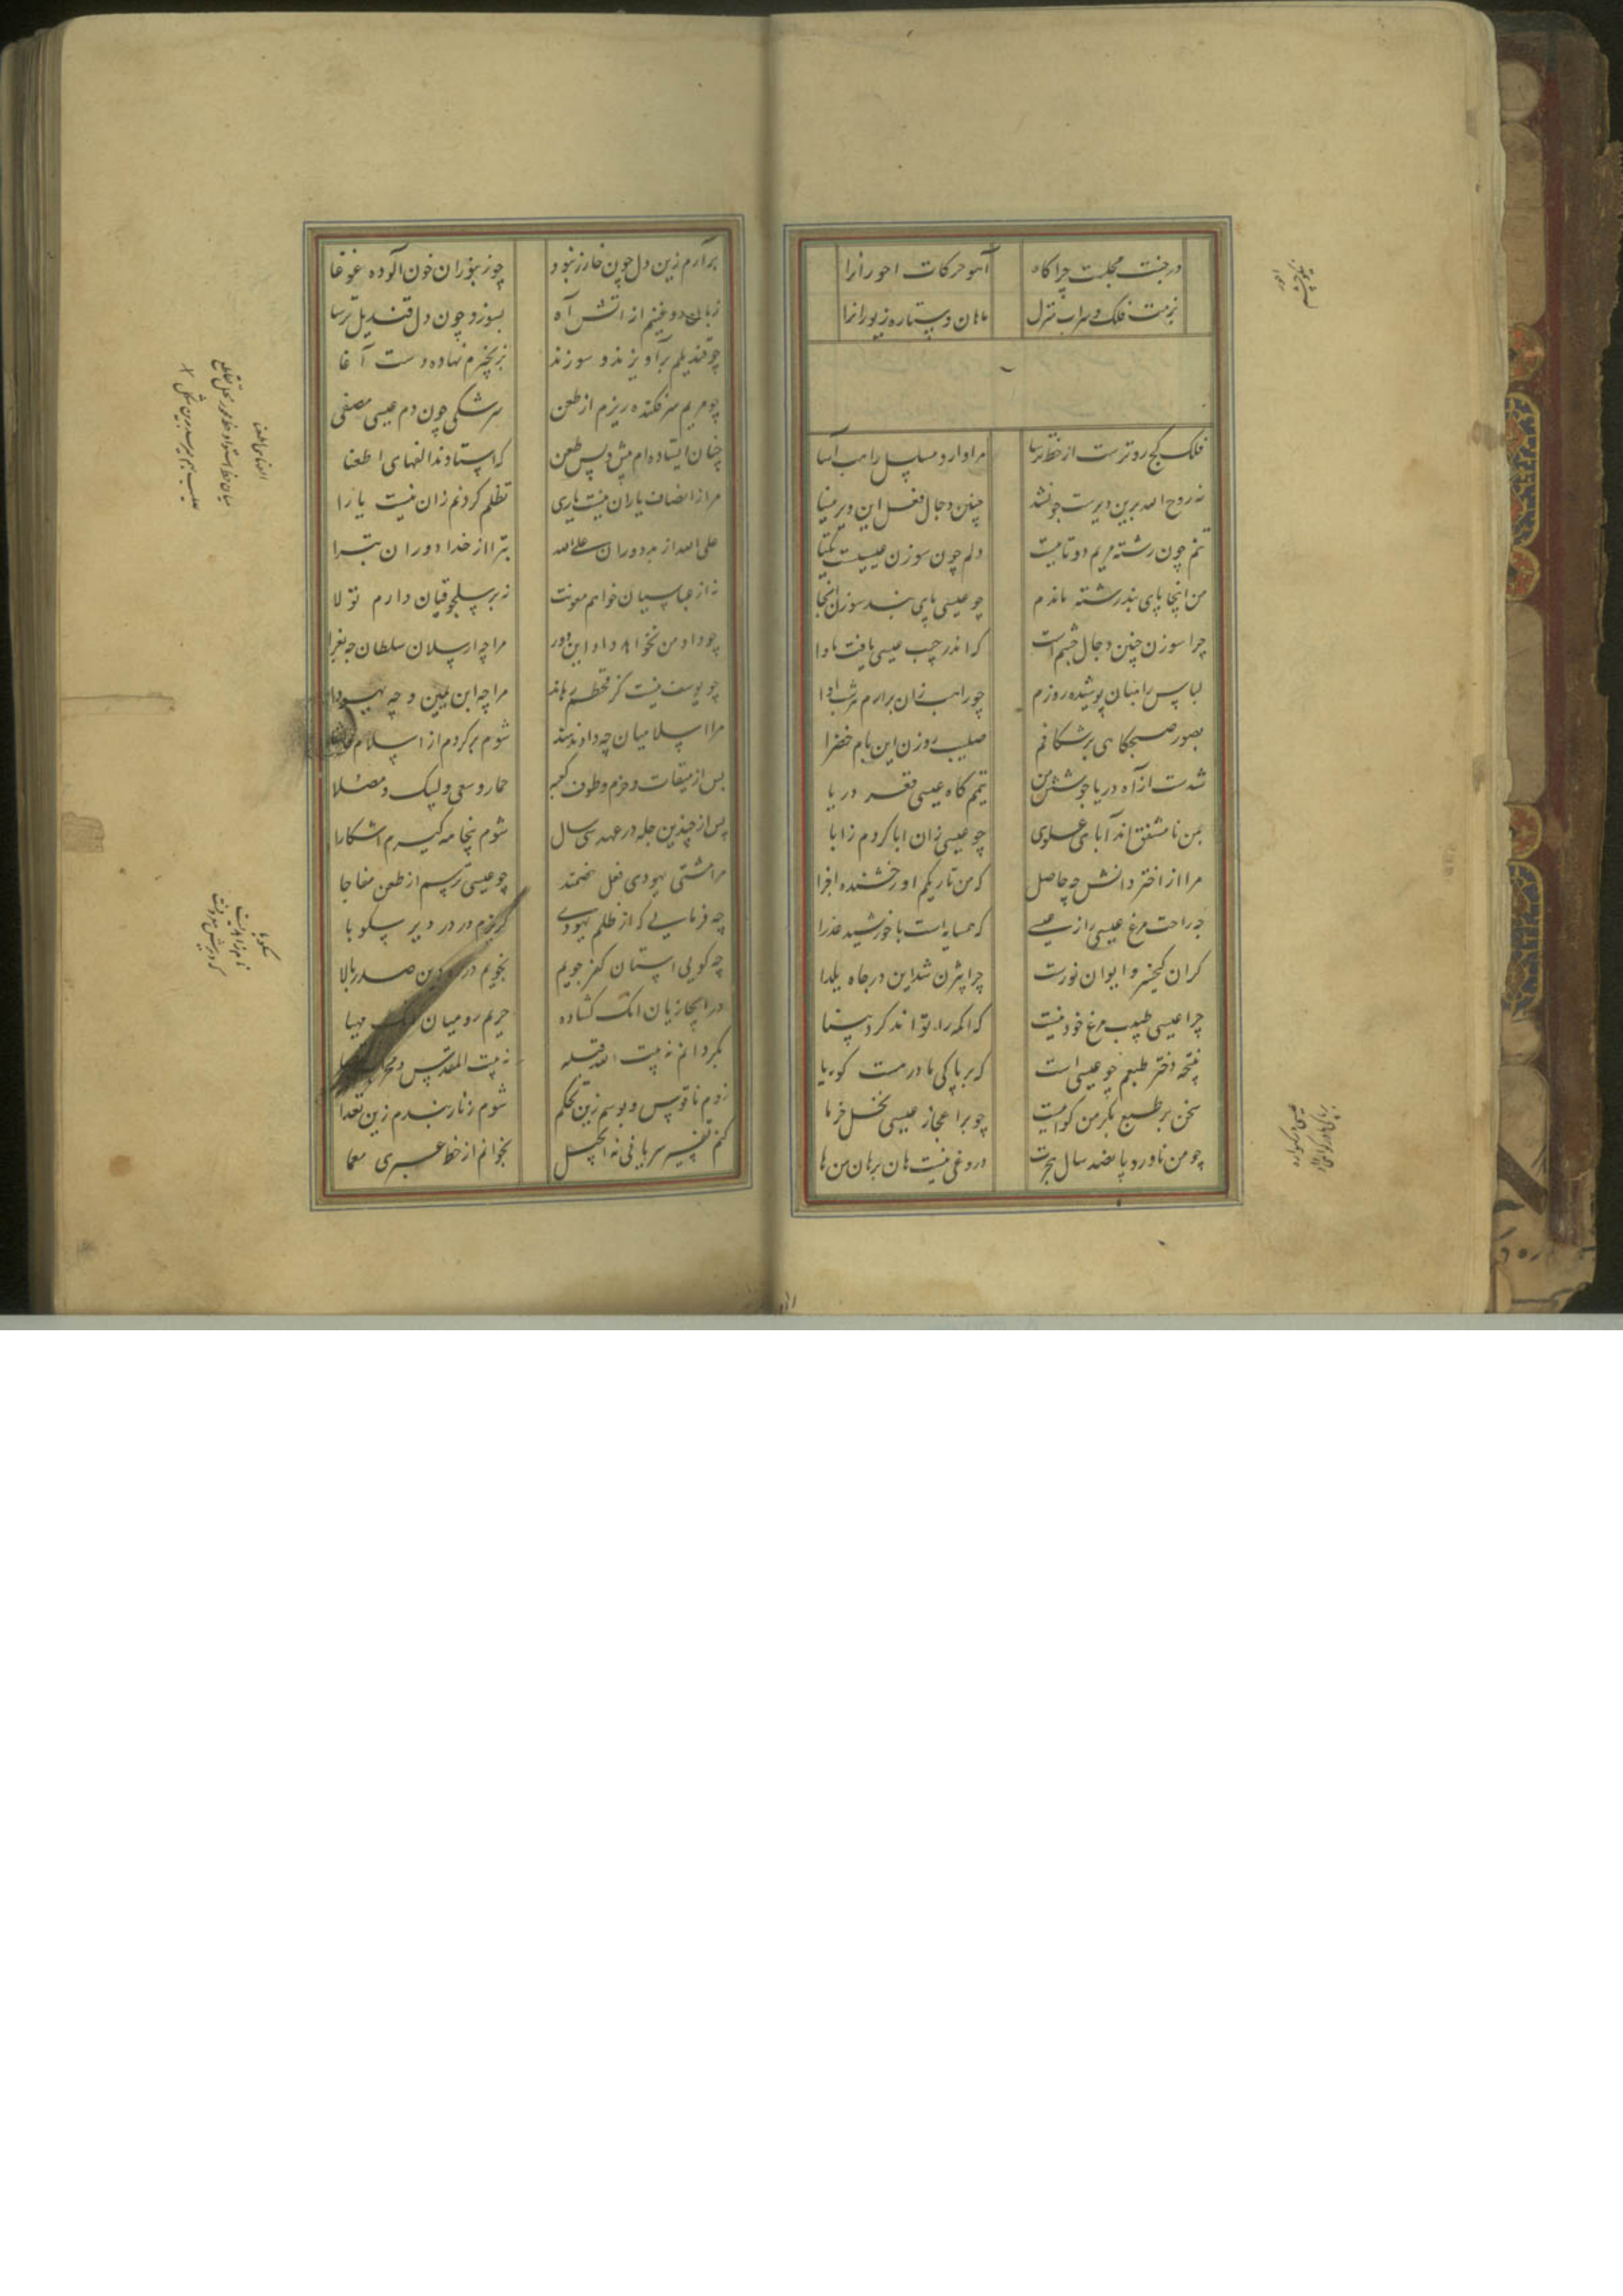 در جنت مجلست چراگاه آهو حرکات احورانرا
بزمت فلک و سراب منزل ماهان و ستاره زیورانرا
فلک کج روترست از خط ترسا مرا دارد مسلسل راهب آسا
نه روح الله برین دیرست چون شد چنین دجال فعل این دیر مینا
تنم چون رشته مریم دوتا نیست دلم چون سوزن عیسیست یکتا
من اینجا پای بند رشته ماندم چو عیسی پای بند سوزن آنجا
چرا سوزن چنین دجال چشم است که اندر جیب عیسی یافت ماوا
لباس راهبان پوشیده روزم چو راهب زان برارم هر شب آوا
بصور صبحگاهی برشکافم صلیب روزن این بام خضرا
شدست از آه دریا جوشش من تیمم گاه عیسی قعر دریا
بمن نامشفق اند آبای علوی چو عیسی زان ابا کردم ز آبا
مرا از اختر دانش چه حاصل که من تاریکم او رخشنده اجزا
چه راحت مرغ عیسی را ز عیسی که همسایه است با خورشید عذرا
گران کیخسرو ایوان نورست چرا بیژن شد این در چاه یلدا
چرا عیسی طبیب مرغ خود نیست که اکمه را تواند کرد بینا
نتیجه دختر طبعم چو عیسی است که بر پاکی مادر هست گویا
سخن بر طبع بکر من گواهست چو بر اعجاز عیسی نخل خرما
چو من ناورد پانصد سال هجرت دروغی نیست هان برهان من ها
برآرم زین دل چون خان زنبور چو زنبوران خون آلوده غوغا
زبان روغنینم ز آتش آه بسوزد چون دل قندیل ترسا
چو قندیلم برآویزند و سوزند بزنجیرم نهاده دست آغا
چو مریم سر فکنده ریزم از طعن سرشکی چون دم عیسی مصفی
چنان استاده ام پیش و پس طعن که استادند الفهای اطعنا
مرا ز انصاف یاران نیست یاری تظلم کردنم زان نیست یارا
علی الله از بد دوران علی الله تبرا از خدا دوران تبرا
نه از عباسیان خواهم معونت نه بر سلجوقیان دارم تولا
چو داد من نخواهد داد این دور مرا چه ارسلان سلطان چه بغرا
چو یوسف نیست کز قحطم رهاند مرا چه ابن یمین و چه یهودا
مرا اسلامیان چه داد ندهند شوم برگردم از اسلام
پس از میقات و حرم و طوف کعبه جمار و سعی و لبیک و مصلا
پس از چندین چله در عهد سی سال شوم پنجاهه گیرم آشکارا
مرا مشتی یهودی فعل خصمند چو عیسی ترسم از طعن مفاجا
چه فرمایی که از ظلم یهودی گریزم در در دیر سکوبا
چه گویی آستان کفر جویم نجویم در ره دین صدر بالا
در ابخازیان اینک گشاده حریم رومیان اینک مهیا
بگردانم ز بیت الله قبله به بیت المقدس و محراب اقصا
روم ناقوس و بوسم زین تحکم شوم زنار بندم زین تعدا
کنم تفسیر سریانی ز انجیل بخوانم از خط عبری معما
سکوبا